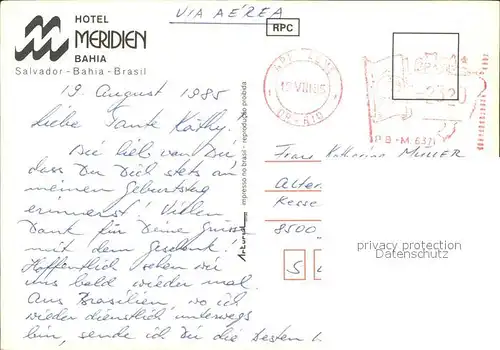 HOTEL
MERIDIEN
BAHIA
Salvador - Bahia - Brasil
VIA AÉREA
RPC
19. August 1985
Liebe Tante Käthy!
Wie lieb von Dir,
dass Du Dich stets an
meinen Geburtstag
erinnerst! Vielen
Dank für Deine Grüsse
mit dem Geschenk!
Hoffentlich sehen wir
uns bald wieder mal.
Aus Brasilien, wo ich
wieder dienstlich unterwegs
bin, sende ich Dir die besten
impresso no brasil - reprodução proibida
19 VIII 85
232
PB - M. 6371
Frau Katharina MÜLLER
Alter
Kesse
8500
S
privacy protection
Datenschutz